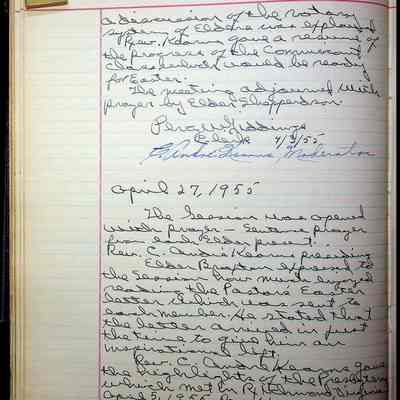 a discussion of the rotary
system of Elders was explained
Rev. Kearns gave a resume of
the progress of the Communicant
class which would be ready
for Easter.
The meeting adjourned with
prayer by Elder Shepperdson.
Clerk 4/3/55
C. André Kearns Moderator
April 27, 1955
The Session was opened
with prayer - Sentence prayer
from each Elder present.
Rev. C. André Kearns presiding
Elder Braxton expressed to
the Session how much enjoyed
reading the Pastors Easter
letter which was sent to
each member. He stated that
the letter arrived in just
the time to give him an
inspirational lift.
Rev. C. André Kearns gave
the highlights of the Presbytery
which met in Richmond Virginia
April 5, 1955